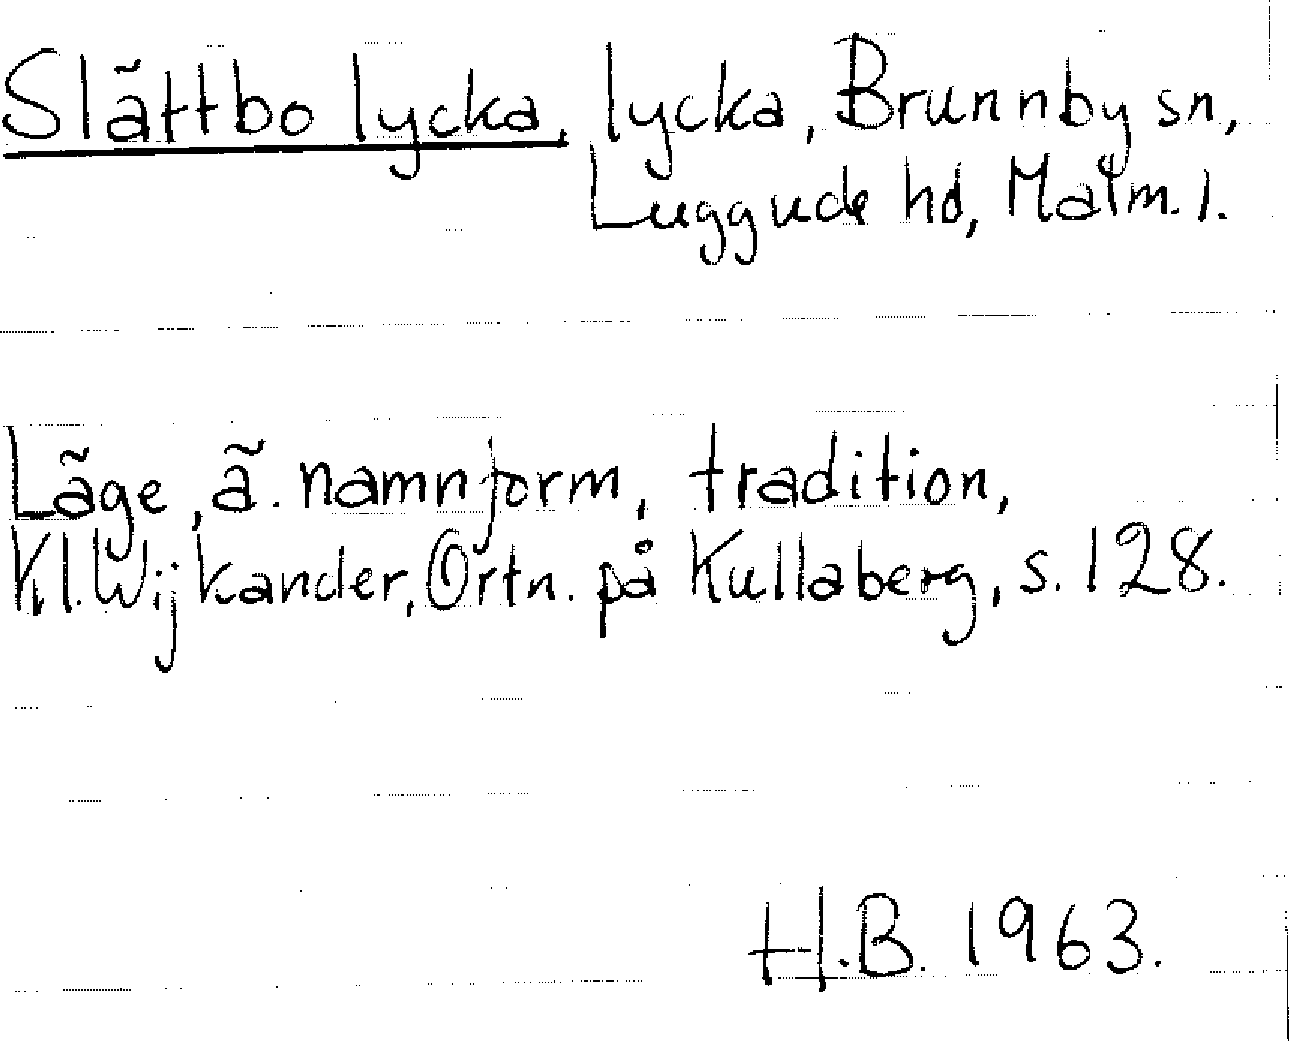 Slättbo lycka, lycka, Brunnby sn,
Luggude hd, Malm. l.
Läge, ä. namnform, tradition,
Kl. Wijkander, Ortn. på Kullaberg, s. 128.
H.B. 1963.